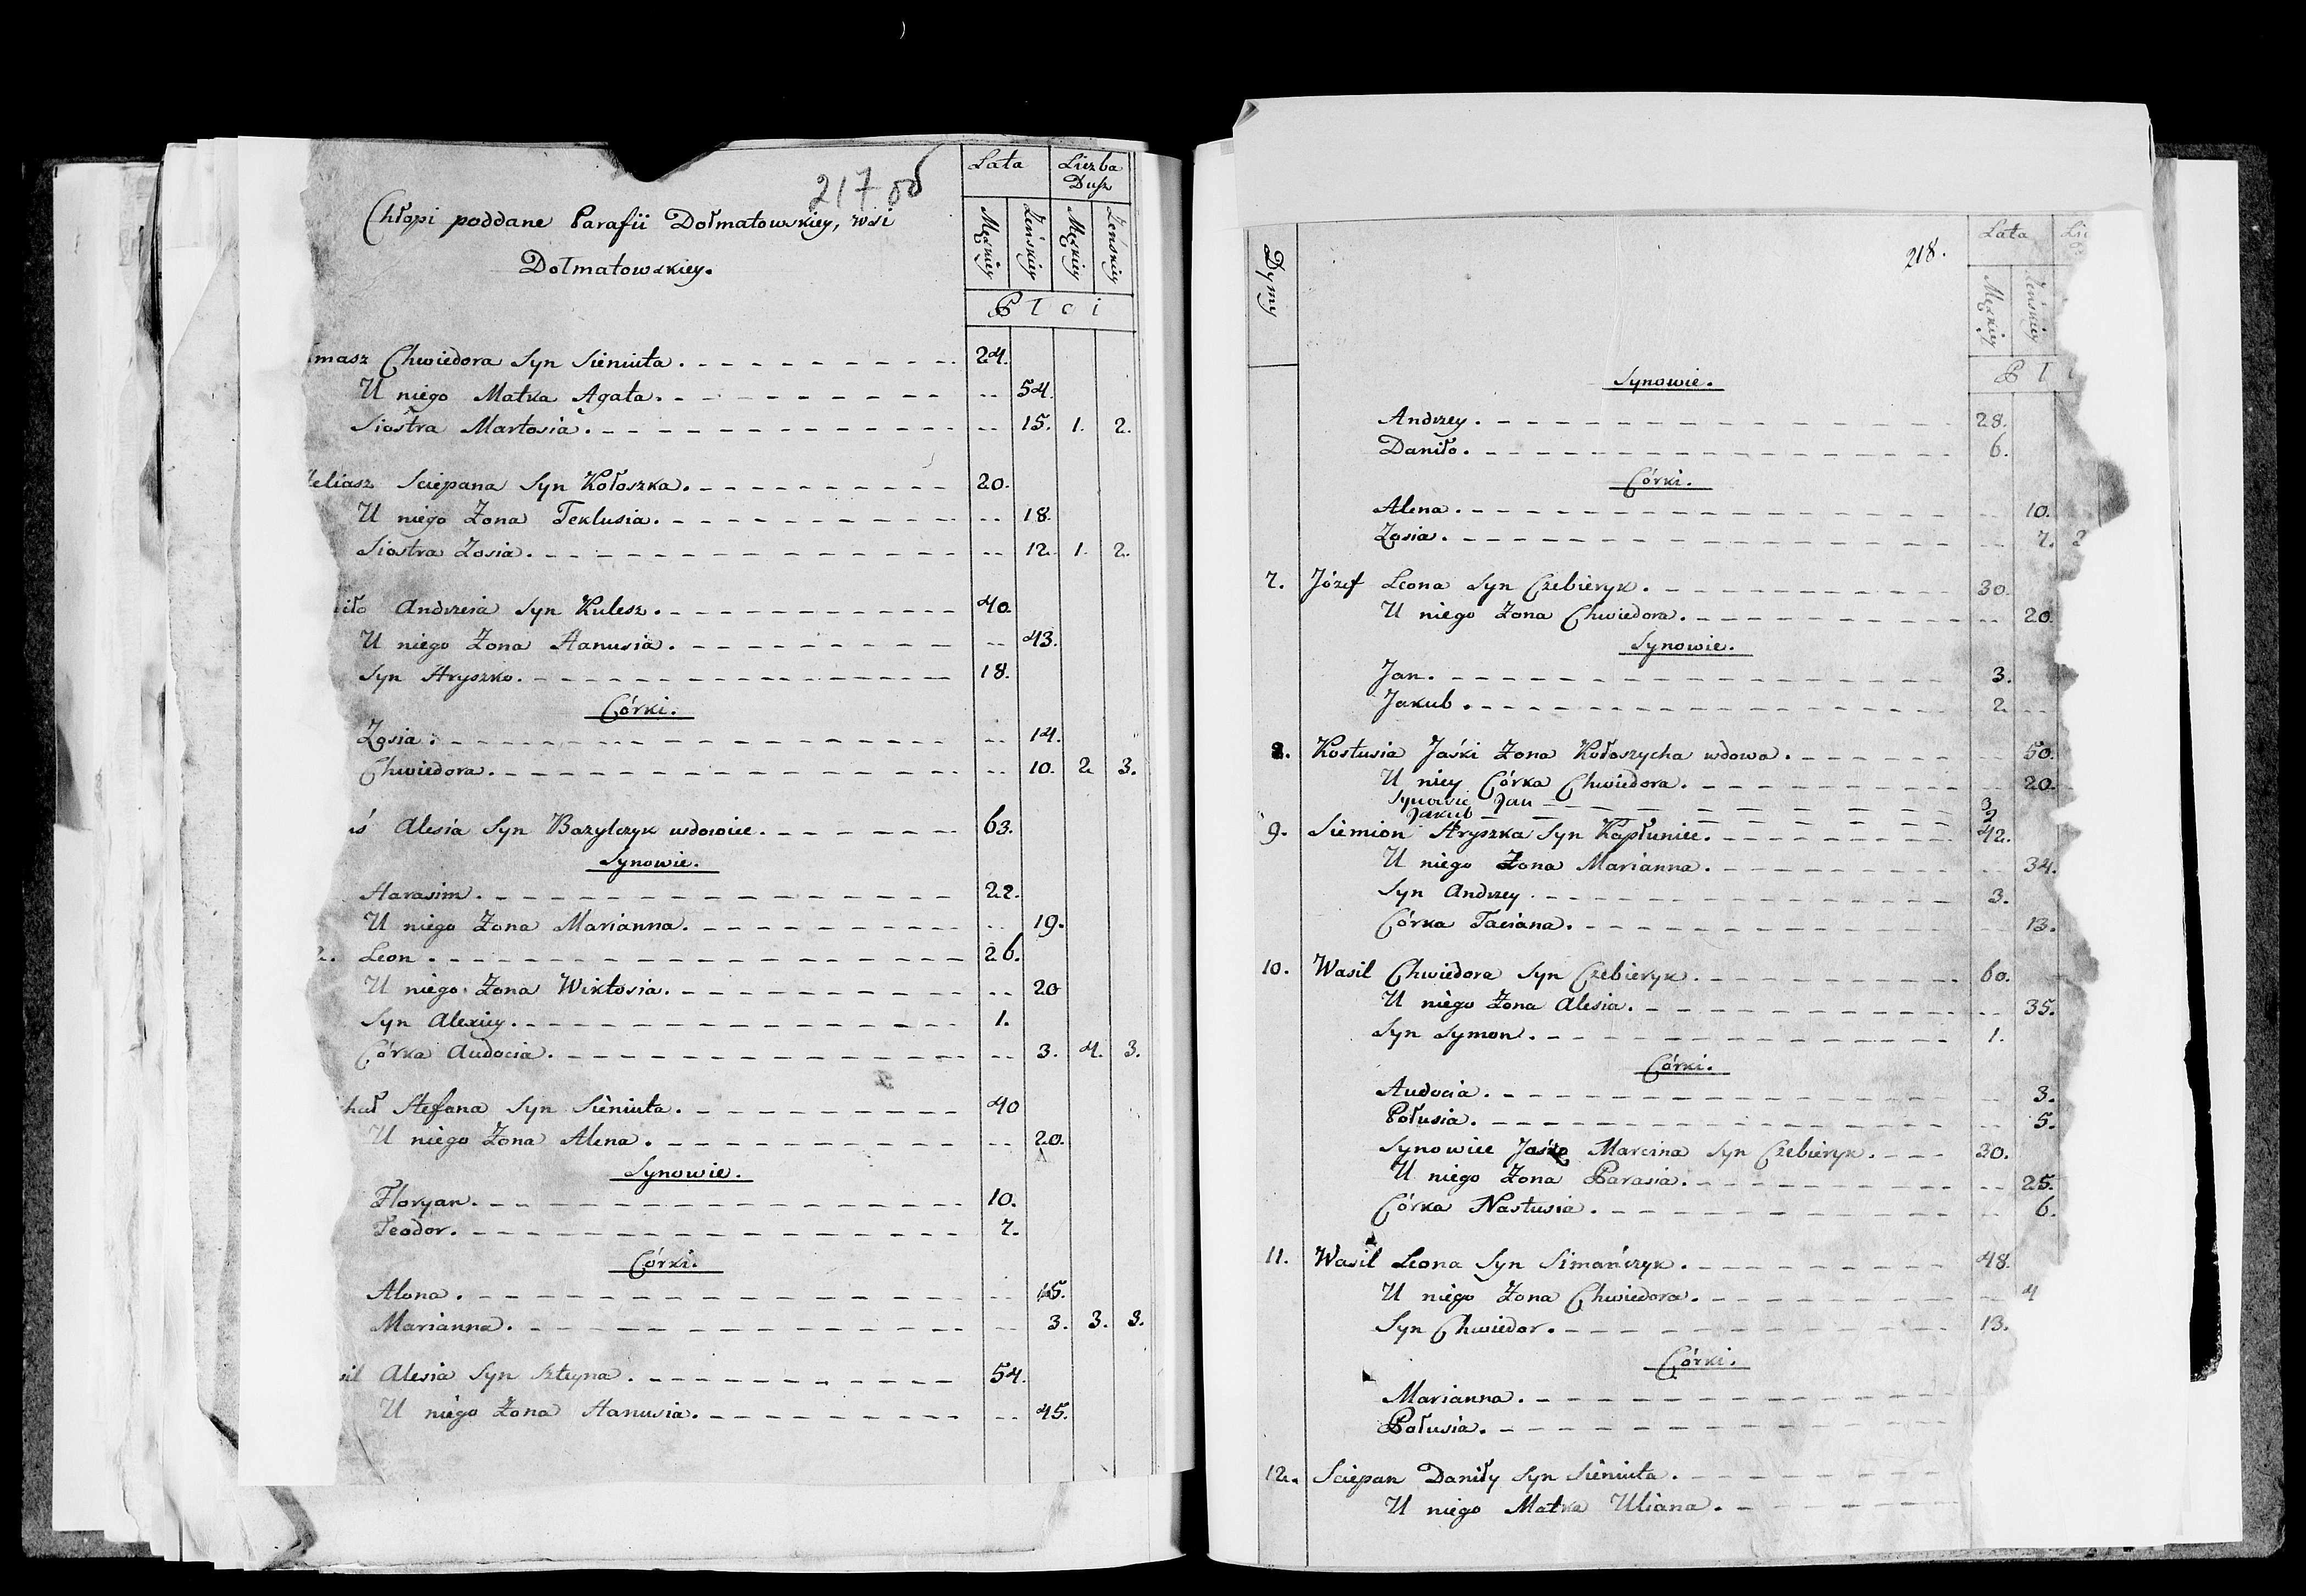 217 об
Lata Liczba Dusz
Chłopi poddane Parafii Dołmatowskiey, wsi
Dołmatowskiey.
Męzkiey Żeńskiey Męzkiey Żeńskiey
Płci
masz Chwiedora Syn Sieniuta. 24.
U niego Matka Agata. 54.
Siostra Martosia. 15. 1. 2.
eliasz Sciepana Syn Kołoszka. 20.
U niego Żona Teklusia. 18.
Siostra Zosia. 12. 1. 2.
iło Andrzeia Syn Kulesz. 40.
U niego Żona Hanusia. 43.
Syn Hryszko. 18.
Córki.
Zosia. 14.
Chwiedora. 10. 2. 3.
ś Alesia Syn Bazylczyk wdowiec. 63.
Synowie.
Harasim. 22.
U niego Żona Marianna. 19.
2. Leon. 26.
U niego Żona Wiktosia. 20
Syn Alexiey. 1.
Córka Audocia. 3. 4. 3.
chał Stefana Syn Sieniuta. 40
U niego Żona Alena. 20.
Synowie.
Floryan. 10.
Teodor. 7.
Córki.
Alona. 15.
Marianna. 3. 3. 3.
sil Alesia Syn Szteyna. 54.
U niego Żona Hanusia. 45.
Dymy
218.
Lata Lic
Męzkiey Żeńskiey
Pł
Synowie.
Andrzey. 28.
Daniło. 6.
Córki.
Alena. 10.
Zosia. 7. 2
7. Józef Leona Syn Czebieryk. 30.
U niego Żona Chwiedora. 20.
Synowie.
Jan. 3.
Jakub. 2
8. Kostusia Jaśki Żona Kołoszycha wdowa. 50.
U niey Córka Chwiedora. 20.
Synowie Jan 3
Jakub 2
9. Siemion Hryszka Syn Kapłuniec. 42.
U niego Żona Marianna. 34.
Syn Andrzey. 3.
Córka Taciana. 13.
10. Wasil Chwiedora Syn Czebieryk. 60.
U niego Żona Alesia. 35.
Syn Symon. 1.
Córki.
Audocia. 3.
Połusia. 5.
Synowiec Jaśko Marcina Syn Czebieryk. 30.
U niego Żona Parasia. 25.
Córka Nastusia. 6.
11. Wasil Leona Syn Simańczyk. 48.
U niego Żona Chwiedora. 4
Syn Chwiedor. 13.
Córki.
Marianna.
Połusia.
12. Sciepan Daniły Syn Sieniuta.
U niego Matka Uliana.